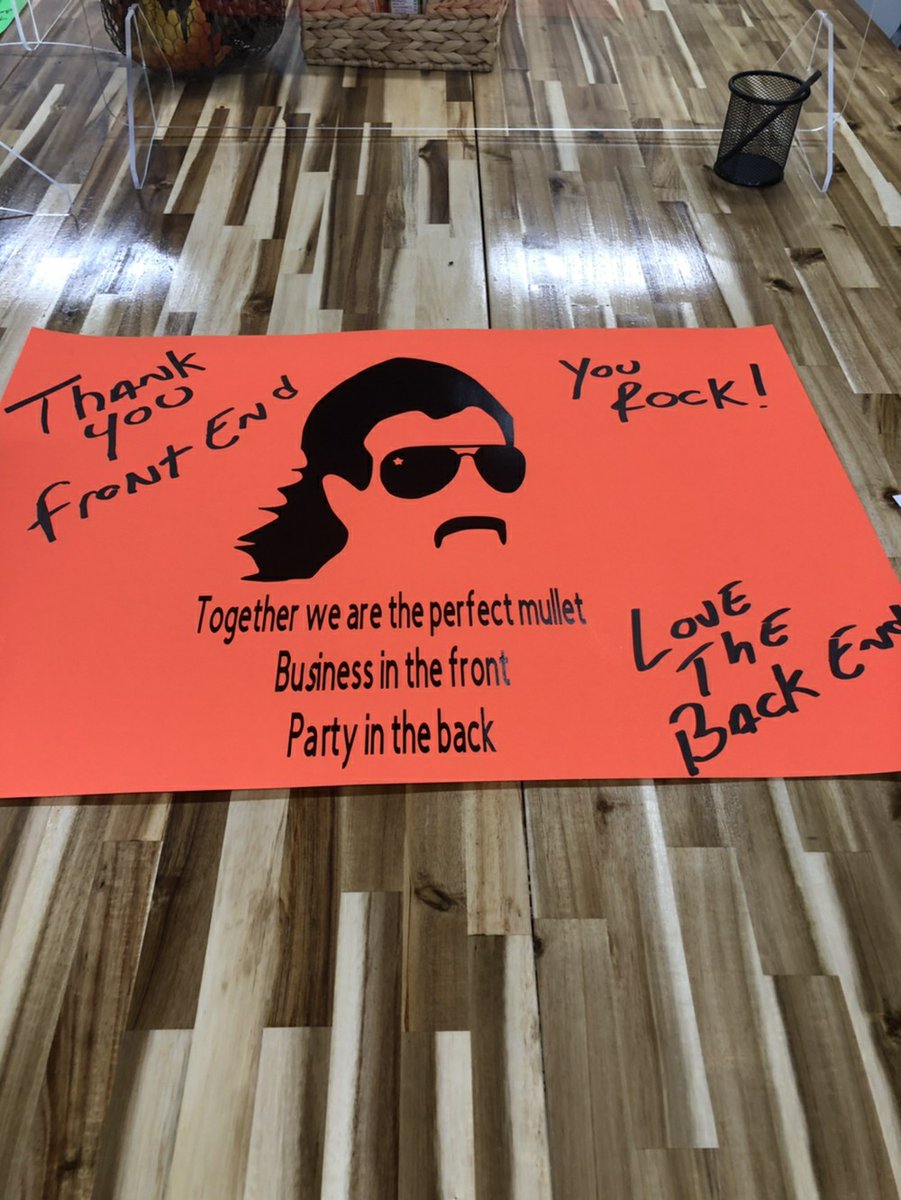 Thank
you
Front End
You
Rock!
Together we are the perfect mullet
Business in the front
Party in the back
Love
The
Back End